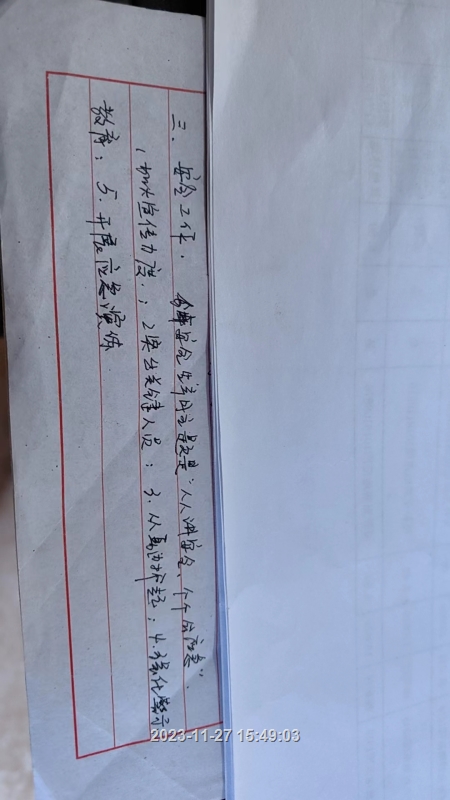 三、安全工作. 今年安全生产月主题是"人人讲安全、个个会应急".
1、加大宣传力度.；2突出关键人员；3、从源头抓起；4.强化警示
教育；5.开展应急演练
2023-11-27 15:49:03